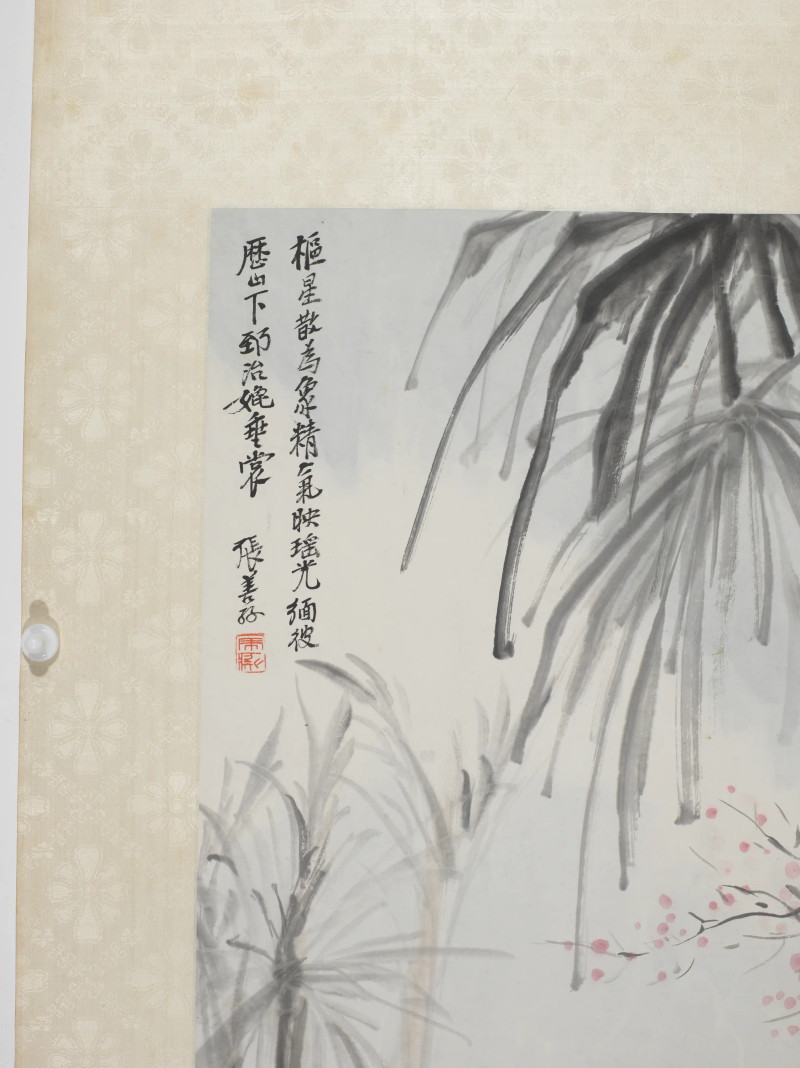 樞星散為象精氣映瑤光緬彼
歷山下郅治媲垂裳
張善孖